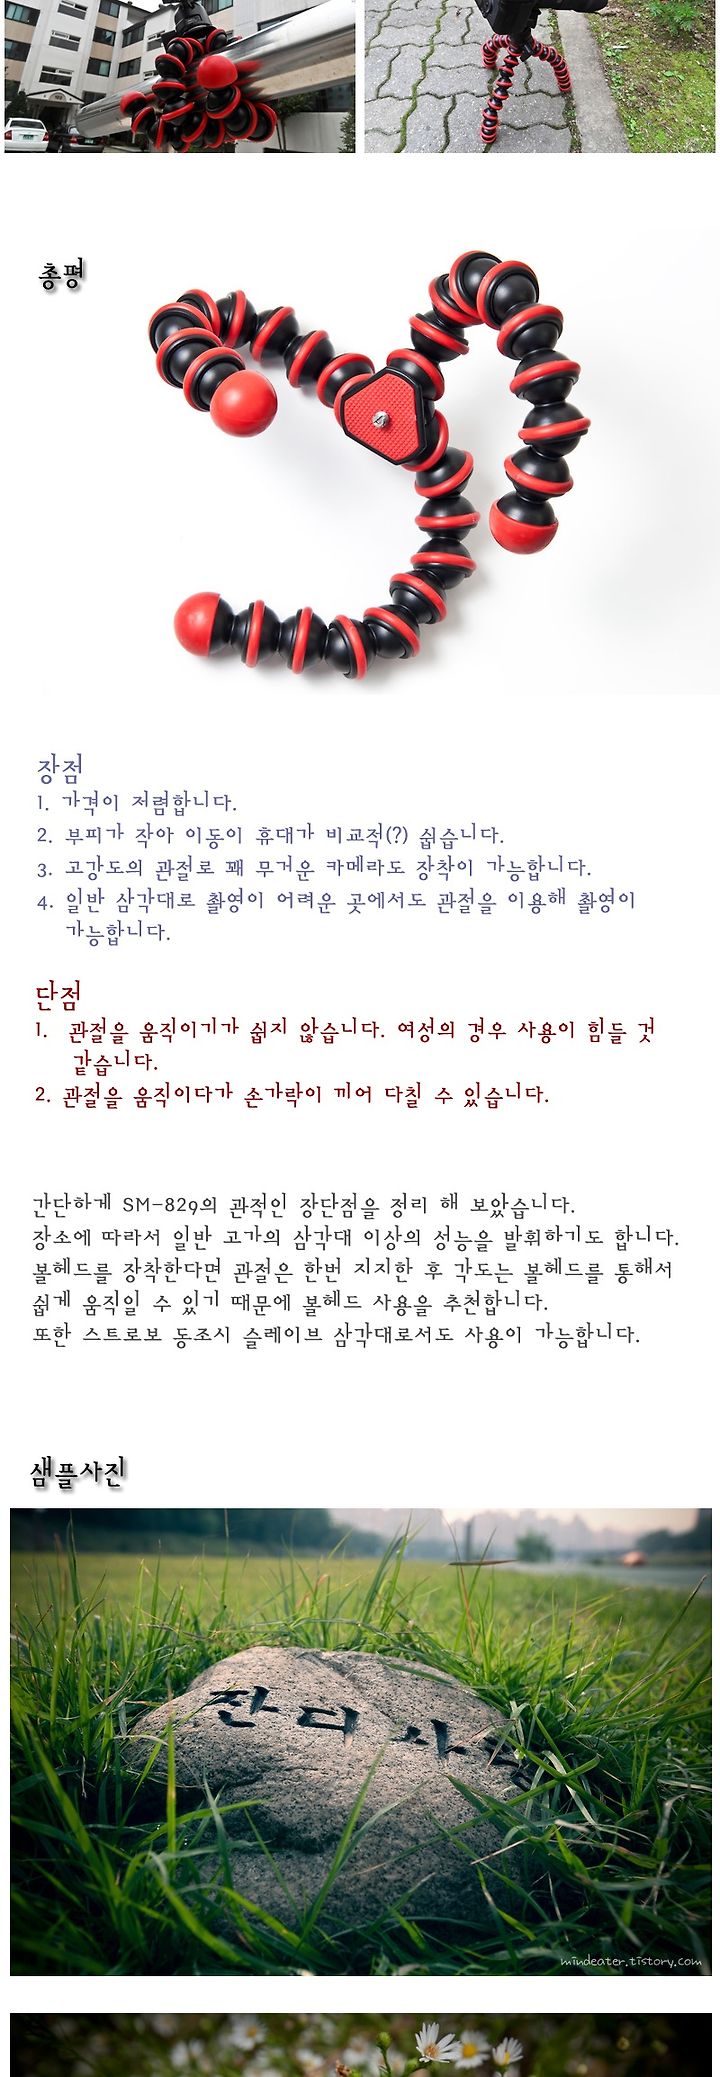 총평
장점
1. 가격이 저렴합니다.
2. 부피가 작아 이동이 휴대가 비교적(?) 쉽습니다.
3. 고강도의 관절로 꽤 무거운 카메라도 장착이 가능합니다.
4. 일반 삼각대로 촬영이 어려운 곳에서도 관절을 이용해 촬영이
가능합니다.
단점
1. 관절을 움직이기가 쉽지 않습니다. 여성의 경우 사용이 힘들 것
같습니다.
2. 관절을 움직이다가 손가락이 끼어 다칠 수 있습니다.
간단하게 SM-829의 관적인 장단점을 정리 해 보았습니다.
장소에 따라서 일반 고가의 삼각대 이상의 성능을 발휘하기도 합니다.
볼헤드를 장착한다면 관절은 한번 지지한 후 각도는 볼헤드를 통해서
쉽게 움직일 수 있기 때문에 볼헤드 사용을 추천합니다.
또한 스트로보 동조시 슬레이브 삼각대로서도 사용이 가능합니다.
샘플사진
잔디사
mindeater.tistory.com